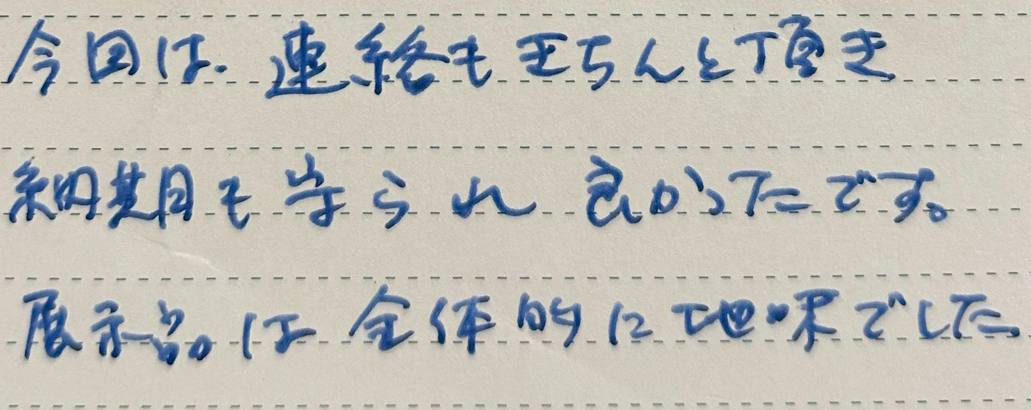 今回は、連絡もきちんと頂き
納期も守られ 良かったです。
展示品は 全体的に地味でした。